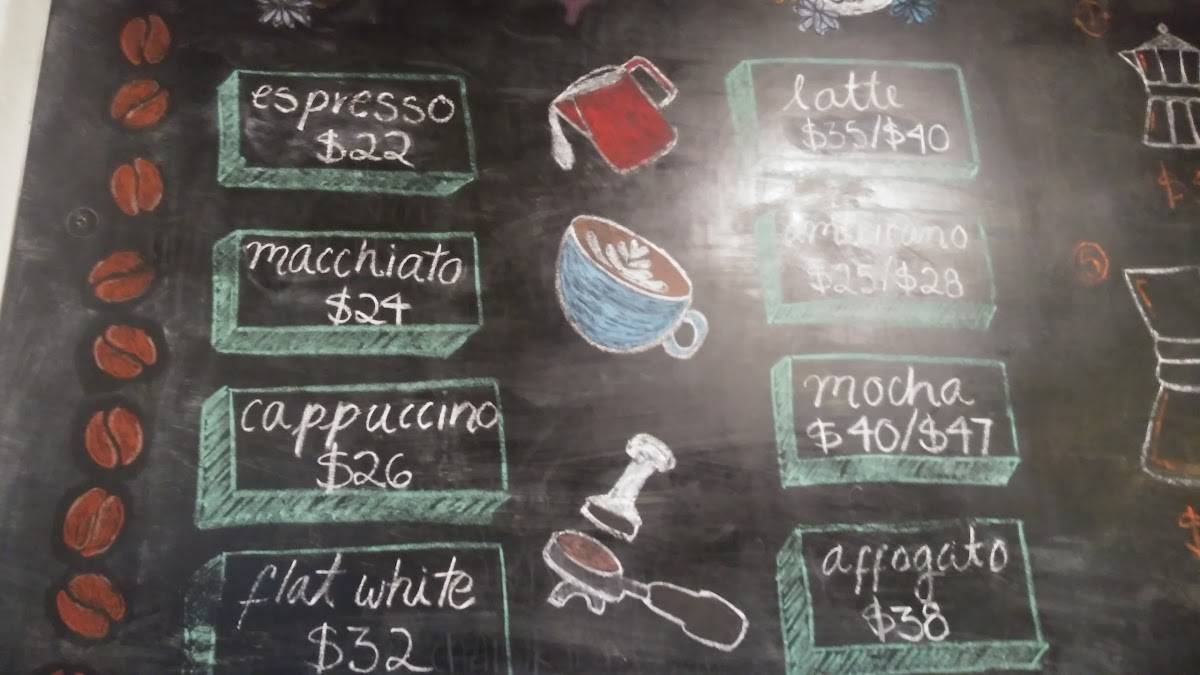 espresso
$22
macchiato
$24
cappuccino
$26
flat white
$32
latte
$35/$40
americano
$25/$28
mocha
$40/$47
affogato
$38